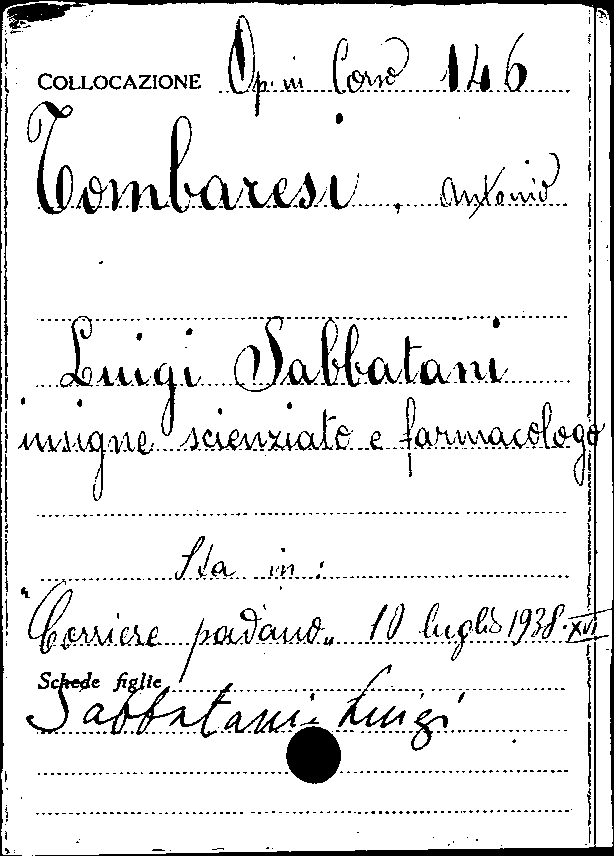 COLLOCAZIONE Op. in Corso 146
Tombaresi, Antonio
Luigi Sabbatani
insigne scienziato e farmacologo
Sta in:
"Corriere padano„ 10 luglio 1938·XVI
Schede figlie
Sabbatani Luigi